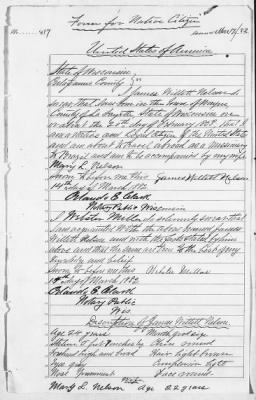 No. ...... 417
Form for Native Citizen
issued Mar 17/82
United States of America.
State of Wisconsin
County } ss
I James Willett Nelson do
swear that I was born in the town of Wayne
County of La Fayette State of Wisconsin, on
or about the day of February 1857, that I
am a native and loyal citizen of the United States
and am about to travel abroad as a missionary
to Brazil and am to be accompanied by my wife
Mary L Nelson
Sworn to before me this James Willett Nelson
14th day of March 1882.
Orlando E Clark
Notary Public Wisconsin
I solemnly swear that
I am acquainted with the above named James
Willett Nelson and with the facts stated by him
above and that the same are true to the best of my
Knowledge and belief
Sworn to before me this
day of March 1882
Orlando E. Clark
Notary Public
Wis
Description of James Willett Nelson.
Age 25 years Mouth
Stature 5 feet inches Chin round
Forehead high and broad Hair light brown
Eyes gray Complexion light
Nose prominent Face round
Mary L. Nelson Wife age 22 years